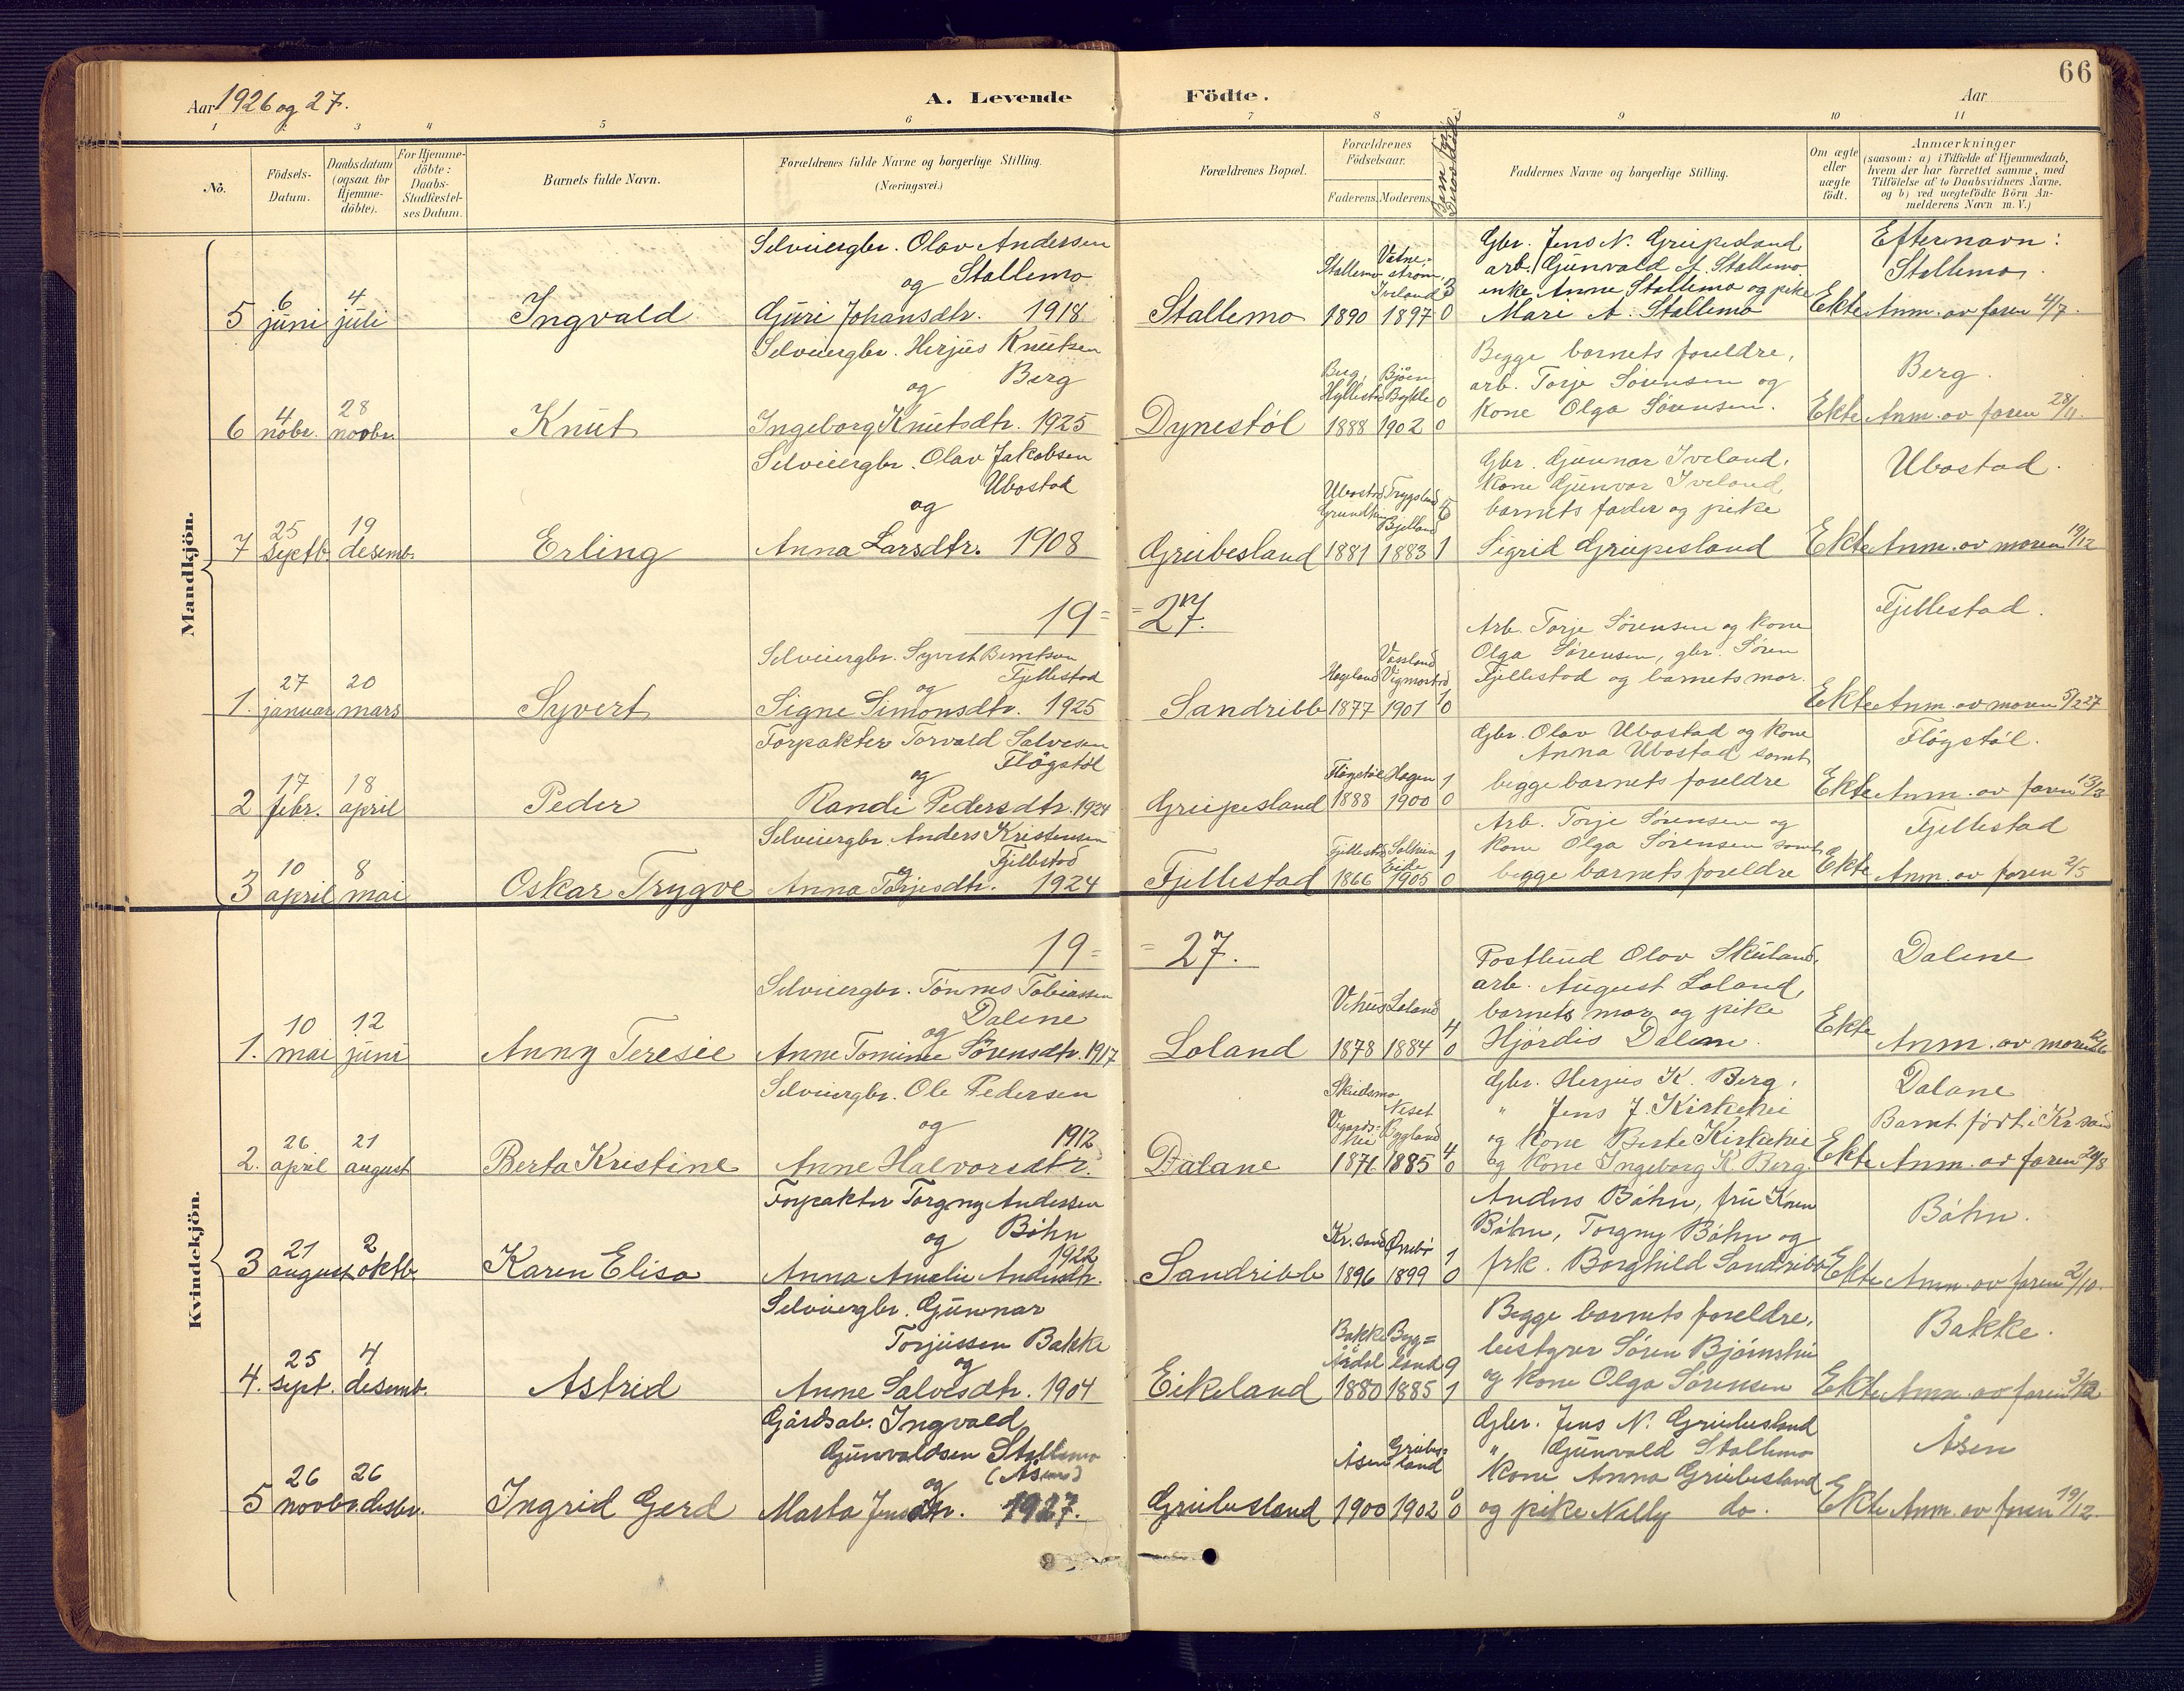 66
Aar 1926 og 27.
A. Levende Födte.
Aar
1 2 3 4 5 6 7 8 9 10 11
No.
Födsels-Datum.
Daabsdatum (ogsaa for Hjemme-döbte).
For Hjemme-döbte: Daabs-Stadfæstel-ses Datum.
Barnets fulde Navn.
Forældrenes fulde Navne og borgerlige Stilling.
(Næringsvei.)
Forældrenes Bopæl.
Forældrenes Födselsaar.
Faderens. Moderens.
Faddernes Navne og borgerlige Stilling.
Om ægte eller uægte födt.
Anmærkninger
(saasom: a) i Tilfælde af Hjemmedaab, hvem der har forrettet samme, med Tilföielse af to Daabsvidners Navne, og b) ved uægtefödte Börn Anmelderens Navn m. V.)
Mandkjön.
Selveiergbr. Olav Andersen
og Stallemo
5 6 juni 4 juli Ingvald Guri Johansdtr. 1918
Stallemo
Stallemo 1890
Vatnestrøm Iveland 1897
3 0
Gbr. Jens N. Greipesland
arb. Gunvald A. Stallemo
enke Anne Stallemo og pike
Mari A. Stallemo
Ekte
Efternavn:
Stallemo.
Anm. av faren 4/7.
Selveiergbr. Herjus Knutsen
og Berg
6 4 nobr. 28 novbr. Knut Ingeborg Knutsdtr. 1925
Dynestøl
Berg, Hyllestad 1888
Bjåen Bykle 1902
0 0
Begge barnets foreldre,
arb. Torje Sørensen og
kone Olga Sørensen.
Ekte
Berg.
Anm. av faren 28/11.
Selveiergbr. Olav Jakobsen
Ubostad
og
7 25 septb. 19 desemb. Erling Anna Larsdtr. 1908
Greibesland
Ubostad 1881
Trygsland Bjelland 1883
1
Gbr. Gunnar Iveland,
Kone Gunvor Iveland,
barnets fader og pike
Sigrid Greipesland
Ekte
Ubostad.
Anm. av moren 19/12
19= =27.
Selveiergbr. Syvert Berntsen
Fjellestad
og
1. 27 januar 20 mars Syvert Signe Simonsdtr. 1925
Sandribb
Hageland 1877
Vassland Vigmostad 1901
1 0
Arb. Torje Sørensen og kone
Olga Sørensen, gbr. Søren
Fjellestad og barnets mor.
Ekte
Fjellestad.
Anm. av moren 5/2 27
Forpakter Torvald Salvesen
Fløgstøl
og
2 17 febr. 18 april Peder Randi Pedersdtr. 1924
Greipesland
Fløgstøl 1888
Hagen 1900
1 0
Gbr. Olav Ubostad og kone
Anna Ubostad samt
begge barnets foreldre
Ekte
Fløgstøl.
Anm. av faren 13/3
Selveiergbr. Anders Kristensen
Fjellestad
og
3 10 april 8 mai Oskar Trygve Anna Tarjesdtr. 1924
Fjellestad
Fjellestad 1866
Eide 1905
1 0
Arb. Torje Sørensen og
kone Olga Sørensen samt
begge barnets foreldre
Ekte
Fjellestad
Anm. av faren 2/5
Kvindekjön.
19= =27.
Selveiergbr. Tønnes Tobiassen
Dalene
og
1. 10 mai 12 juni Anny Teresie Anne Tomine Sørensdtr. 1917
Loland
Vehus 1878
Loland 1884
4 0
Postbud Olav Skuland.
arb. August Loland,
barnets mor og pike
Hjørdis Dalene.
Ekte
Dalene
Anm. av moren 12/6
Selveiergbr. Ole Pedersen
og 1912
2. 26 april 21 august Berta Kristine Anne Halvorsdtr.
Dalane
Skudsmo Vegardshei 1871
Neset Bygland 1885
4 0
Gbr. Herjus K. Berg,
" Jens J. Kirkehei
og kone Berte Kirkehei
og kone Ingeborg K. Berg.
Ekte
Dalane
Barnet født i Kr.sand
Anm. av faren 20/8
Forpakter Torgny Andersen
og Bøhn
1922
3 21 august 2 oktb. Karen Elisa Anna Amalie Andersdtr.
Sandribb
Kr.sand 1896
Øvrebø 1899
1 0
Anders Bøhn, fru Karen
Bøhn, Torgny Bøhn og
frk. Borghild Sandribb
Ekte
Bøhn.
Anm. av faren 2/10.
Selveiergbr. Gunnar
Torjussen Bakke
og
4. 25 sept. 4 desemb. Astrid Anne Salvesdtr. 1904
Eikeland
Bakke Årdal 1880
Bygland 1885
9 1
Begge barnets foreldre,
bestyrer Søren Bjørnshei
og kone Olga Sørensen
Ekte
Bakke.
Anm. av faren 3/12
Gårdsab. Ingvald
Gunvaldsen Stallemo
(Åsen)
og
5 26 novbr. 26 desbr. Ingrid Gerd Marta Jensdtr. 1927.
Greibesland
Åsen 1900
Greibesland 1902
0 0
Gbr. Jens N. Greibesland
" Gunvald Stallemo
Kone Anna Greibesland
og pike Nelly do.
Ekte
Åsen
Anm. av faren 19/12.